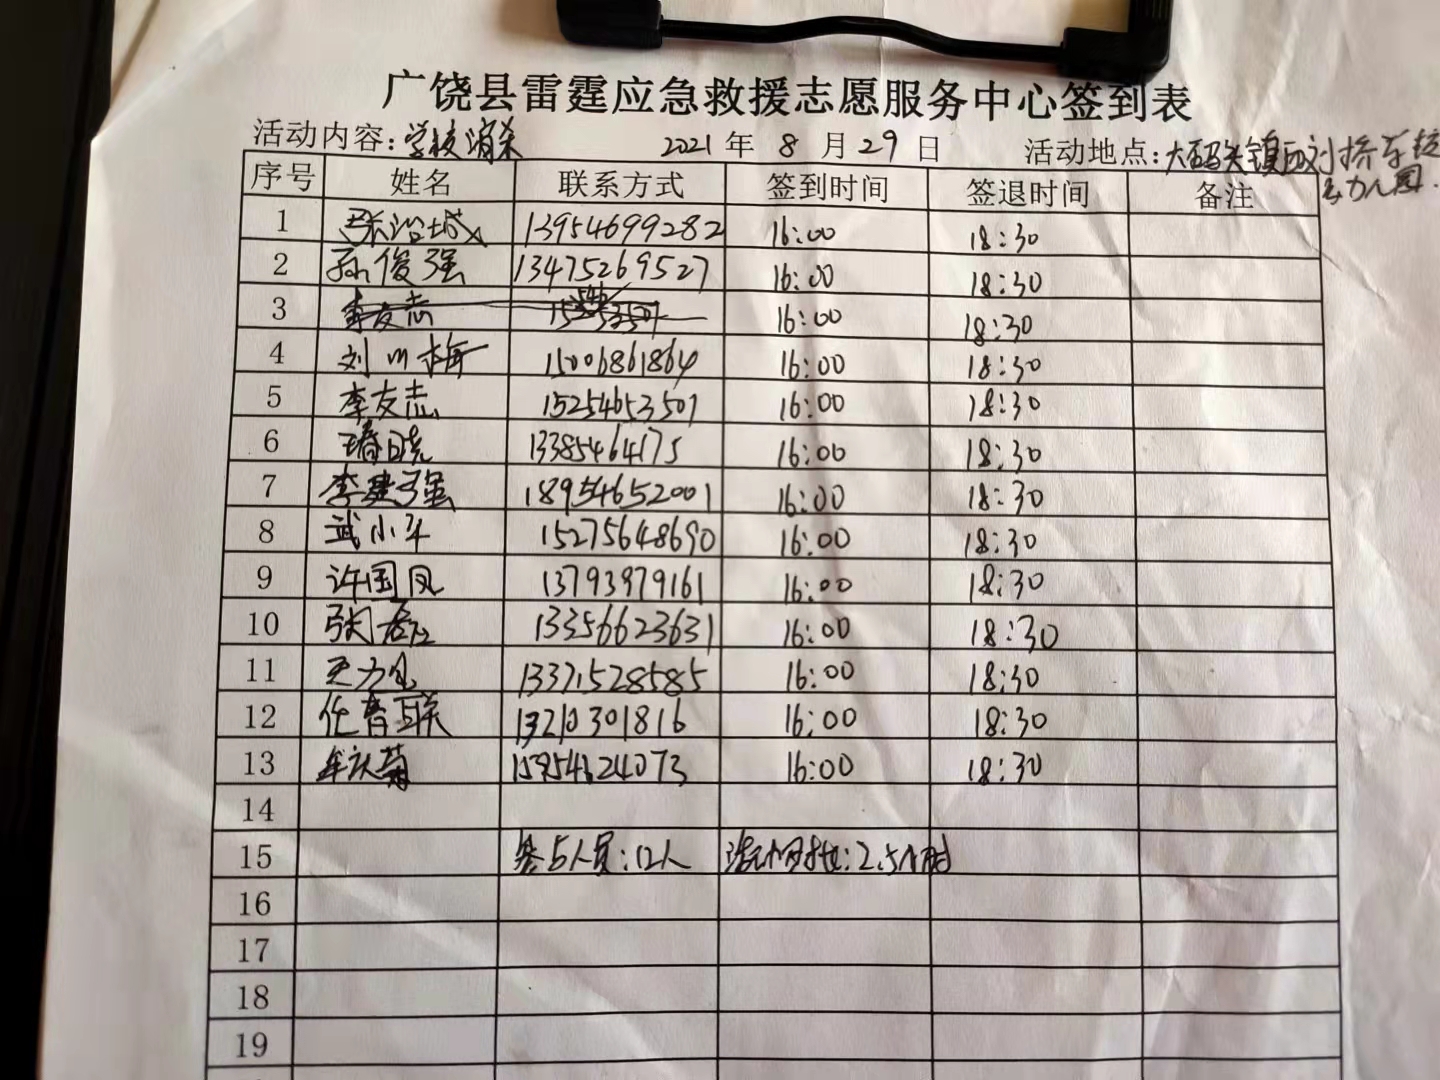 广饶县雷霆应急救援志愿服务中心签到表
活动内容:学校消杀 2021年8月29日 活动地点:大码头镇西刘桥学校
幼儿园.
序号 姓名 联系方式 签到时间 签退时间 备注
1 13954699282 16:00 18:30
2 孙俊强 13475269527 16:00 18:30
3 李友志 16:00 18:30
4 刘川梅 15006861864 16:00 18:30
5 李友志 15254653501 16:00 18:30
6 13385464175 16:00 18:30
7 李建强 18954652001 16:00 18:30
8 武小军 15275648690 16:00 18:30
9 许国凤 13793979161 16:00 18:30
10 13356623631 16:00 18:30
11 13371528585 16:00 18:30
12 任晋联 13210301816 16:00 18:30
13 15954624073 16:00 18:30
14
15 参与人员:12人 活动时长:2.5小时
16
17
18
19